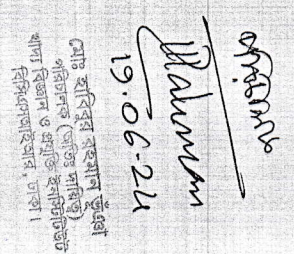 Rahman
19.06-24
মোঃ হাবিবুর রহমান ভূঁইয়া
পরিচালক (অতিঃ দায়িত্ব)
খাদ্য বিজ্ঞান ও প্রযুক্তি ইনস্টিটিউট
বিসিএসআইআর, ঢাকা।